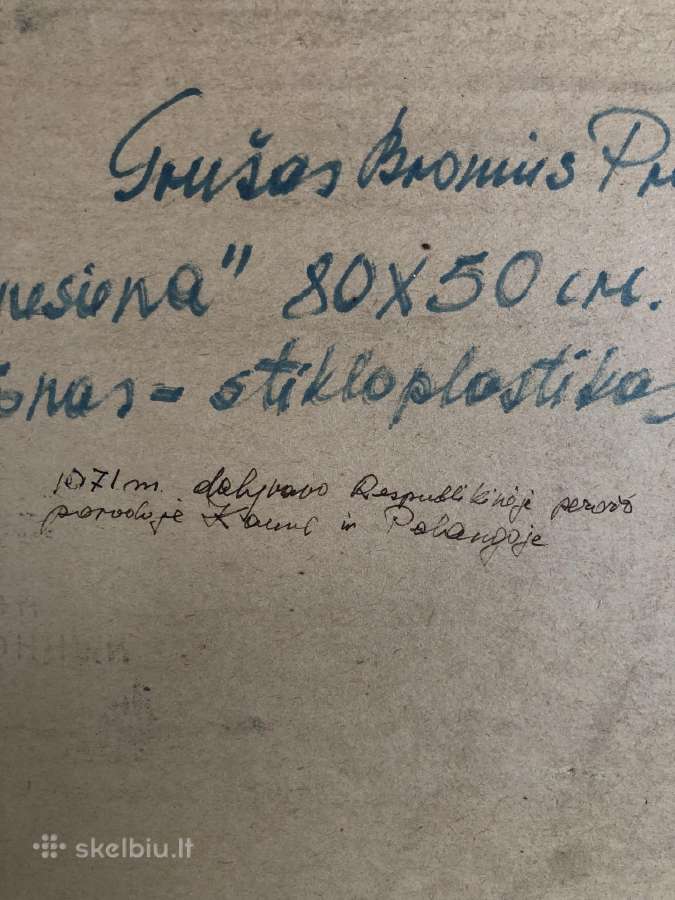 Grušas Bronius Pr
nesiena" 80X50 cm.
onas = stikloplastikas
1971 m. dalyvavo Respublikinėje
parodoje Kaune ir Palangoje
skelbiu.lt